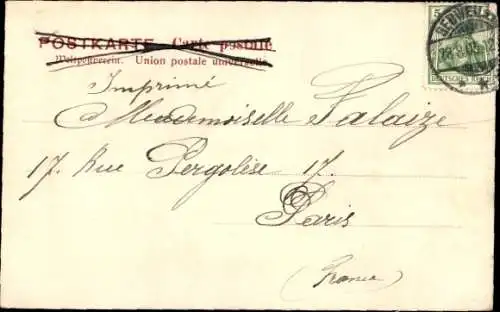 POSTKARTE. Carte postale
Weltpostverein. Union postale universelle
Imprimé
Mademoiselle Palaize
17. Rue Pergolèse 17.
Paris
(France)
5
DEUTSCHES REICH